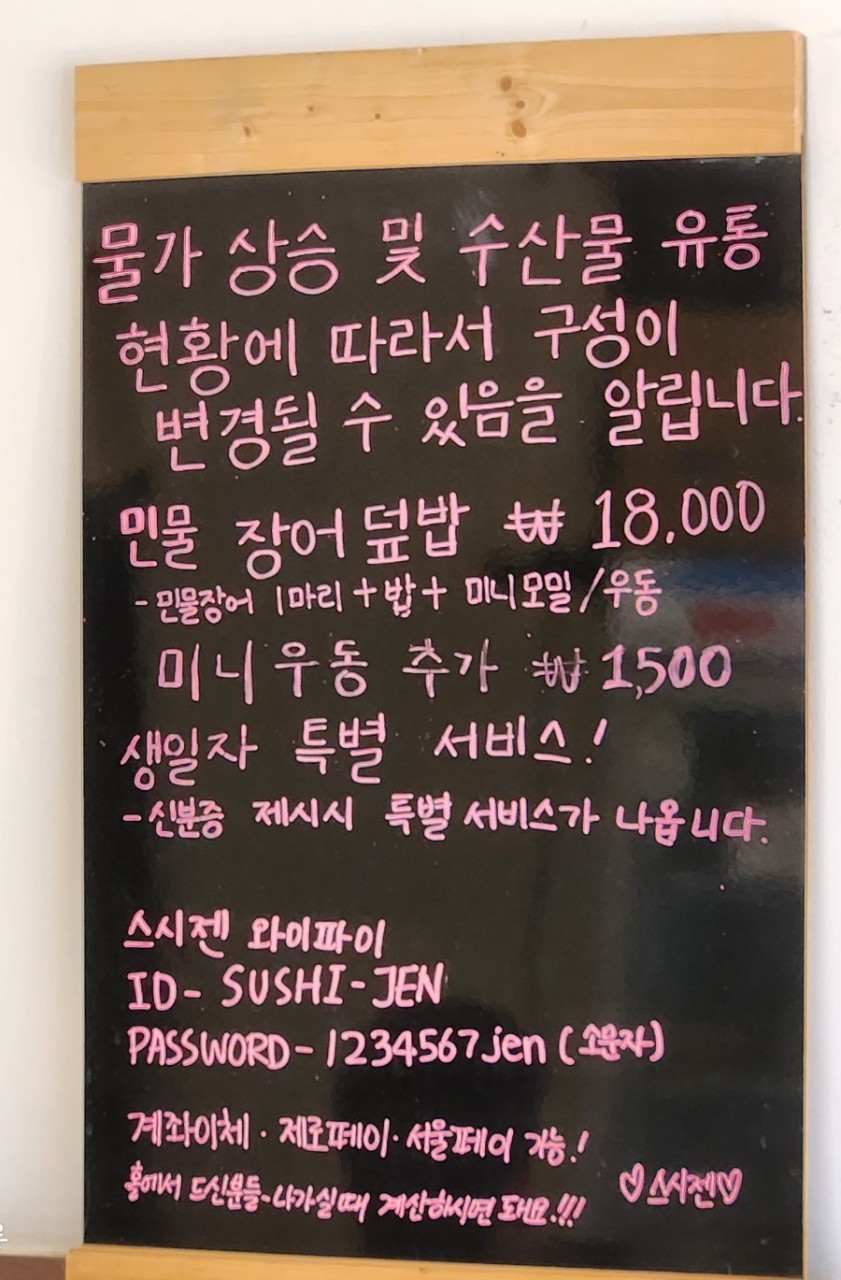 물가 상승 및 수산물 유통
현황에 따라서 구성이
변경될 수 있음을 알립니다.
민물 장어덮밥 ₩ 18.000
- 민물장어 1마리 + 밥 + 미니모밀/우동
미니우동 추가 ₩ 1,500
생일자 특별 서비스!
- 신분증 제시시 특별 서비스가 나옵니다.
스시젠 와이파이
ID- SUSHI-JEN
PASSWORD-1234567jen (소문자)
계좌이체·제로페이·서울페이 가능!
홀에서 드신분들-나가실때 계산하시면 돼요.!!!
♡스시젠♡